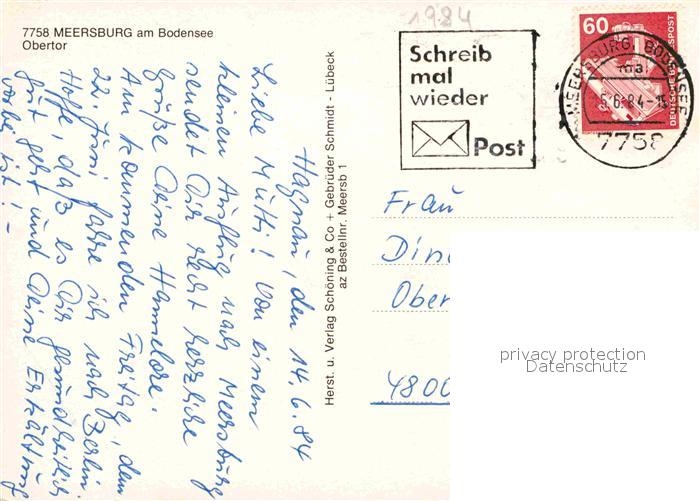 7758 MEERSBURG am Bodensee
Obertor
1984
Schreib
mal
wieder
Post
60
DEUTSCHE BUNDESPOST
MEERSBURG, BODENSEE
15.6.84-15
7758
Hagnau, den 14.6.84
Liebe Mutti! Von einem
kleinen Ausflug nach Meersburg
sendet Dir recht herzliche
Grüße Deine Hannelore.
Am kommenden Freitag, dem
22. Juni fahre ich nach Berlin.
Hoffe, daß es Dir gesundheitlich
gut geht und Deine Erkältung
vorbei ist! –
Herst. u. Verlag Schöning & Co + Gebrüder Schmidt - Lübeck
az Bestellnr. Meersb 1
Frau
Din
Ober
4800
privacy protection
Datenschutz